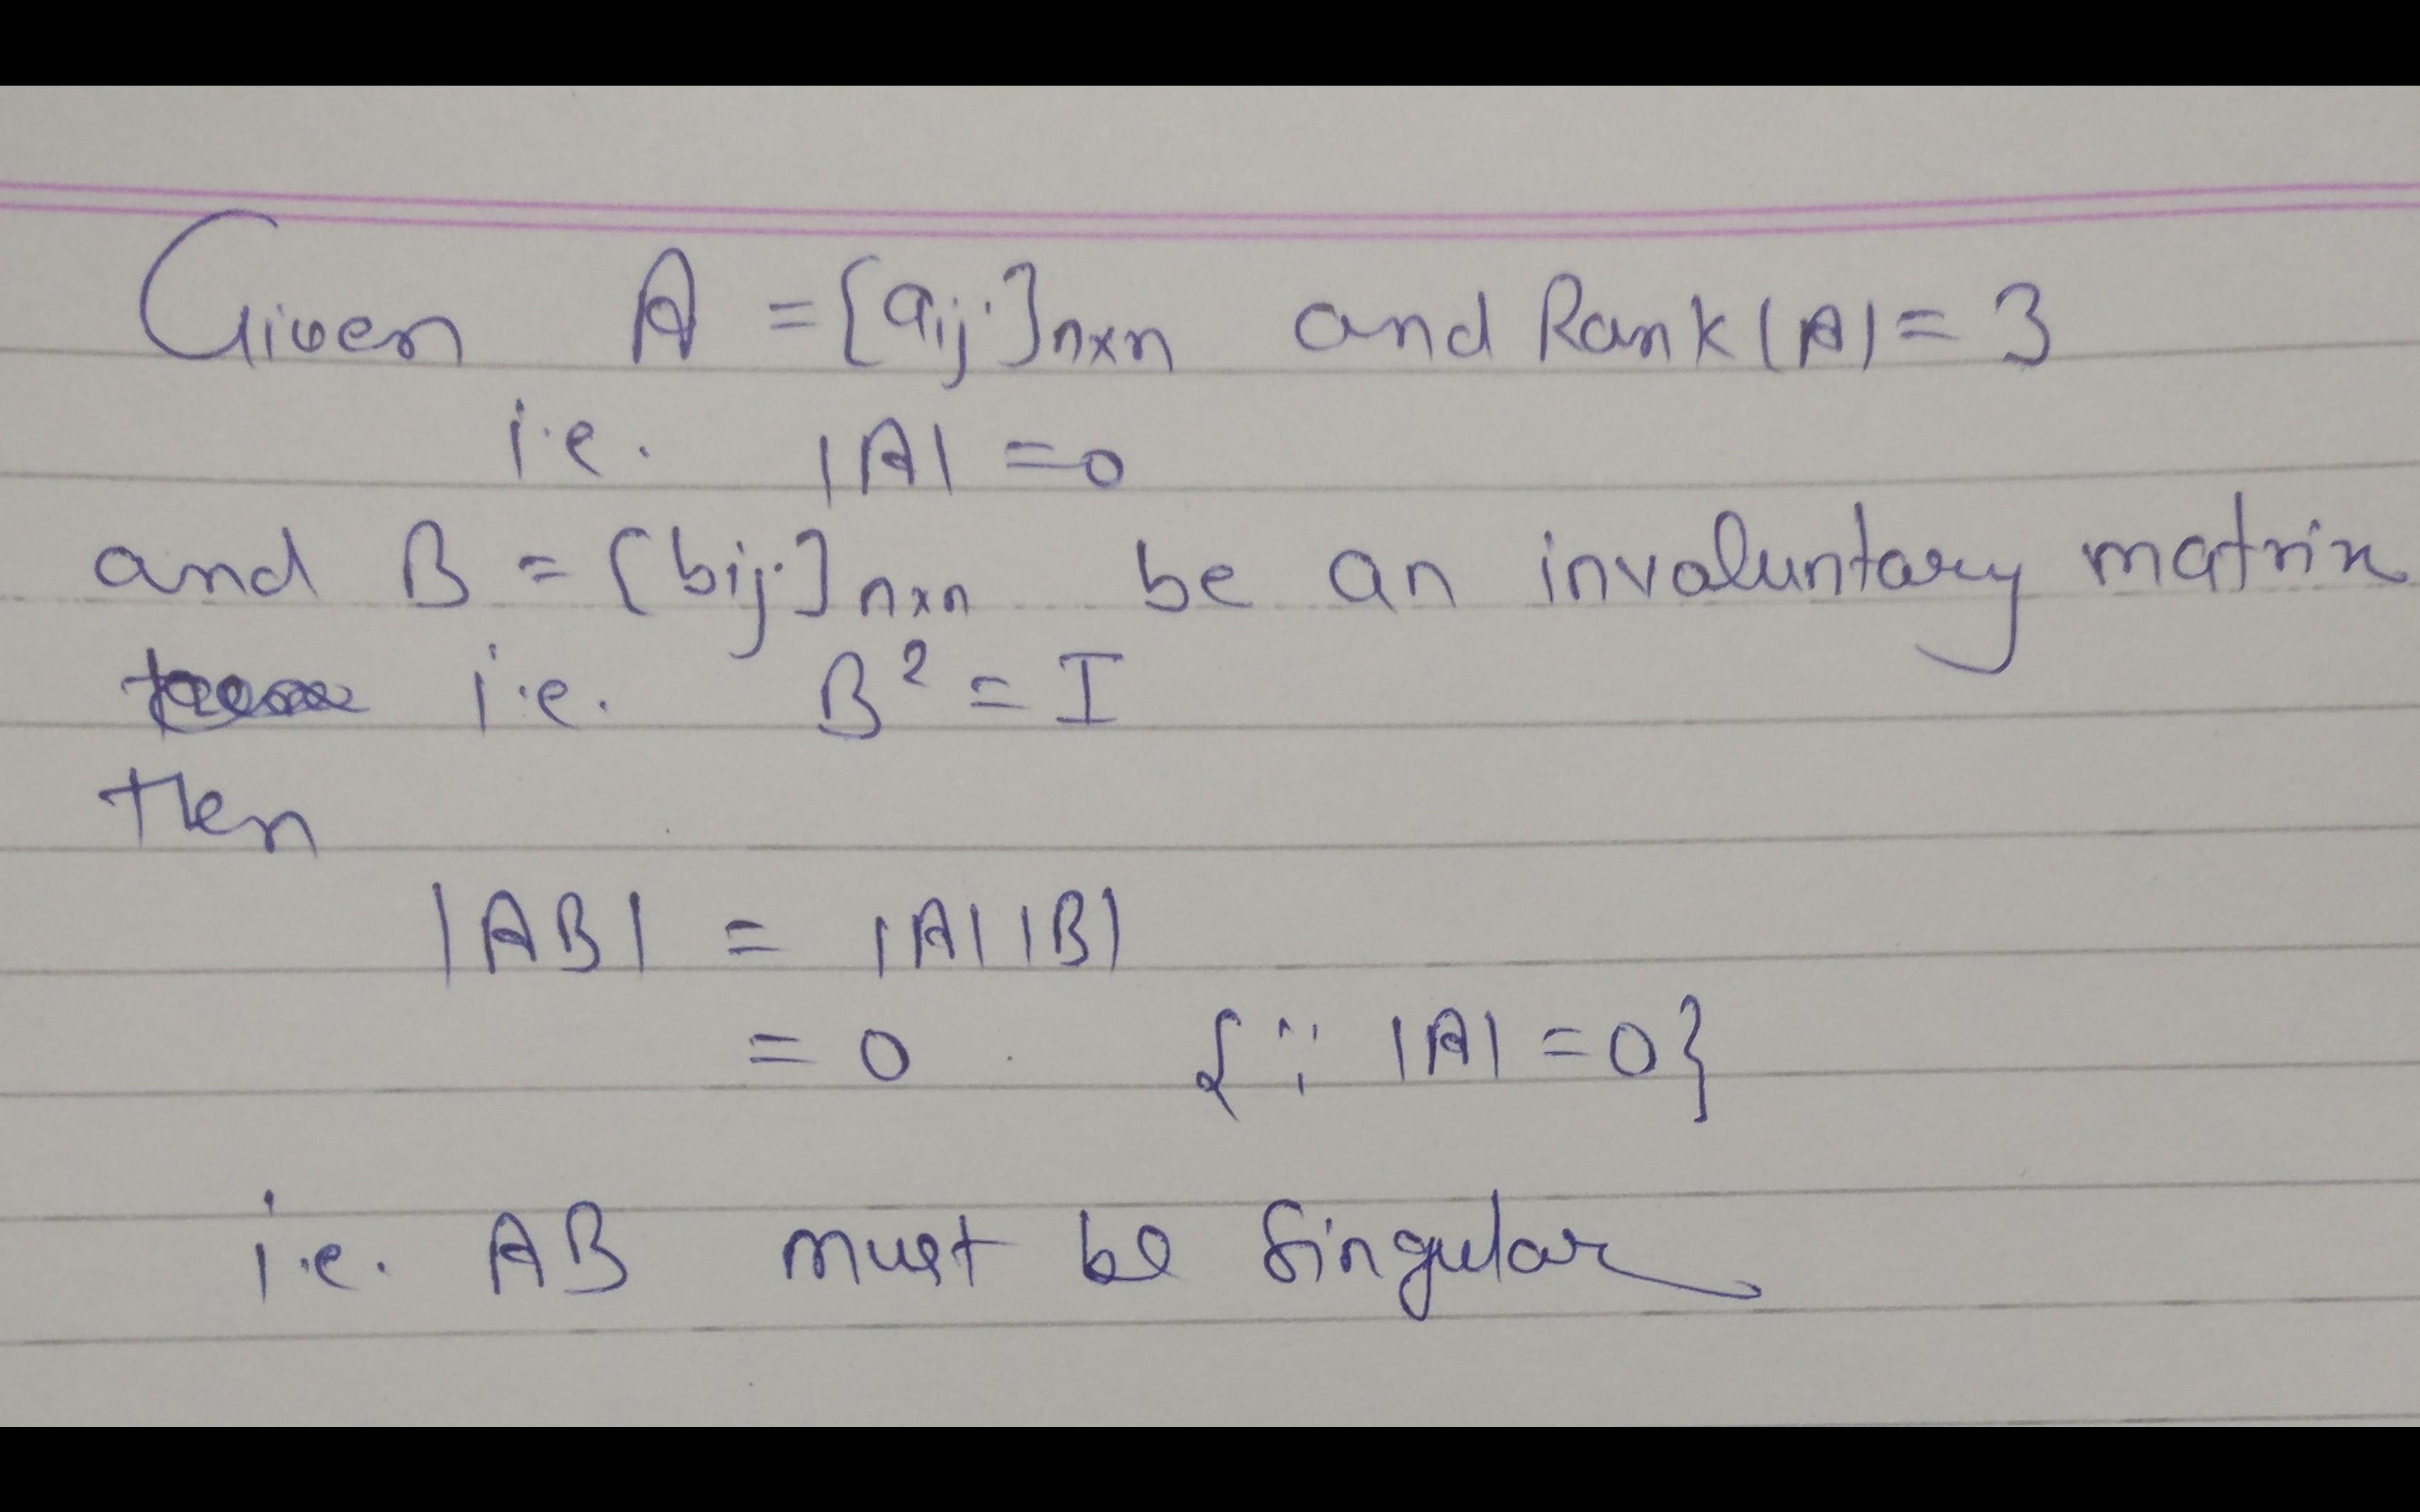 Given A = [aij]n×n and Rank(A) = 3
i.e. |A| = 0
and B = [bij]n×n be an involuntary matrix
i.e. B² = I
then
|AB| = |A||B|
= 0 {∵ |A| = 0}
i.e. AB must be Singular